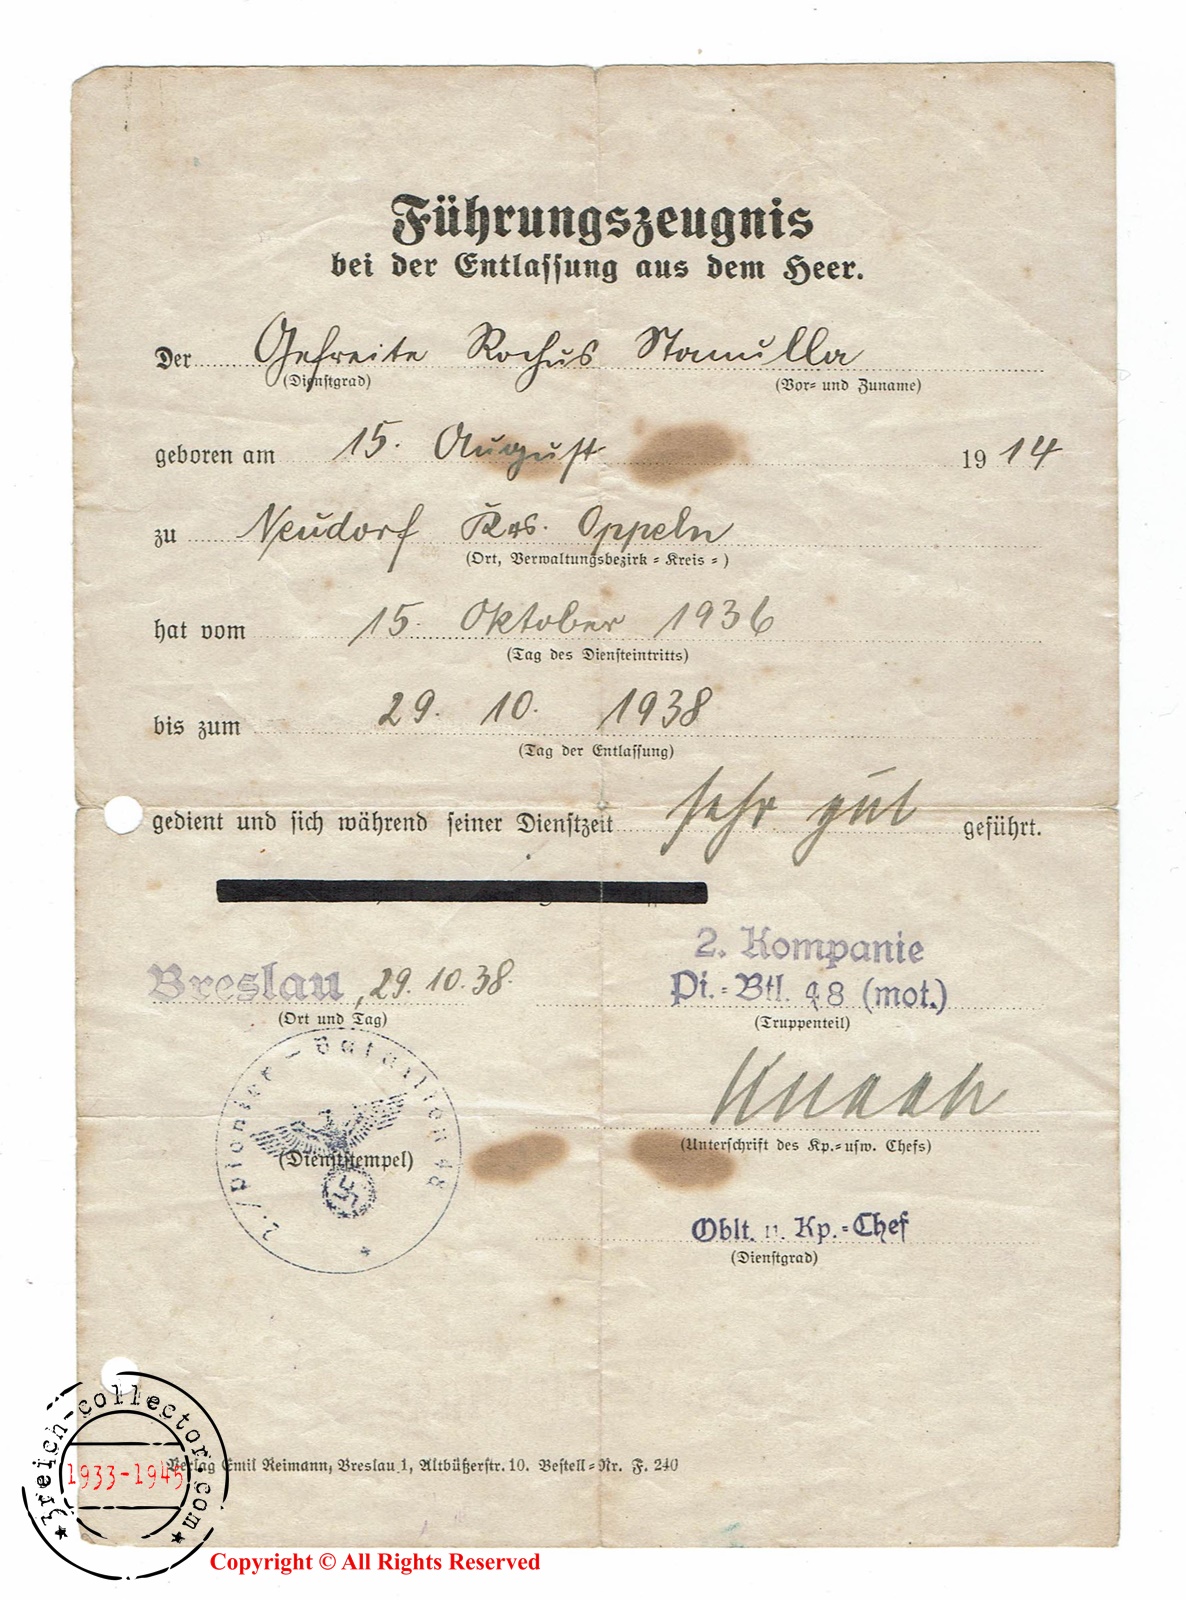 Führungszeugnis
bei der Entlassung aus dem Heer.
Der Gefreite Rochus Stanulla
(Dienstgrad) (Vor- und Zuname)
geboren am 15. August 1914
zu Neudorf Krs. Oppeln
(Ort, Verwaltungsbezirk - Kreis - )
hat vom 15. Oktober 1936
(Tag des Diensteintritts)
bis zum 29. 10. 1938
(Tag der Entlassung)
gedient und sich während seiner Dienstzeit sehr gut geführt.
2. Kompanie
Breslau, 29.10.38. Pi.-Btl. 48 (mot.)
(Ort und Tag) (Truppenteil)
2./Pionier-Bataillon 48
(Unterschrift des Kp.-usw. Chefs)
(Dienststempel)
Oblt. u. Kp.-Chef
(Dienstgrad)
3reich-collector.com
1933-1945
Verlag Emil Reimann, Breslau 1, Altbüßerstr. 10. Bestell-Nr. F. 240
Copyright © All Rights Reserved